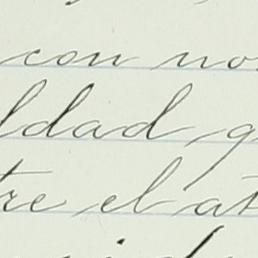 con nos
ldad q
tre el at